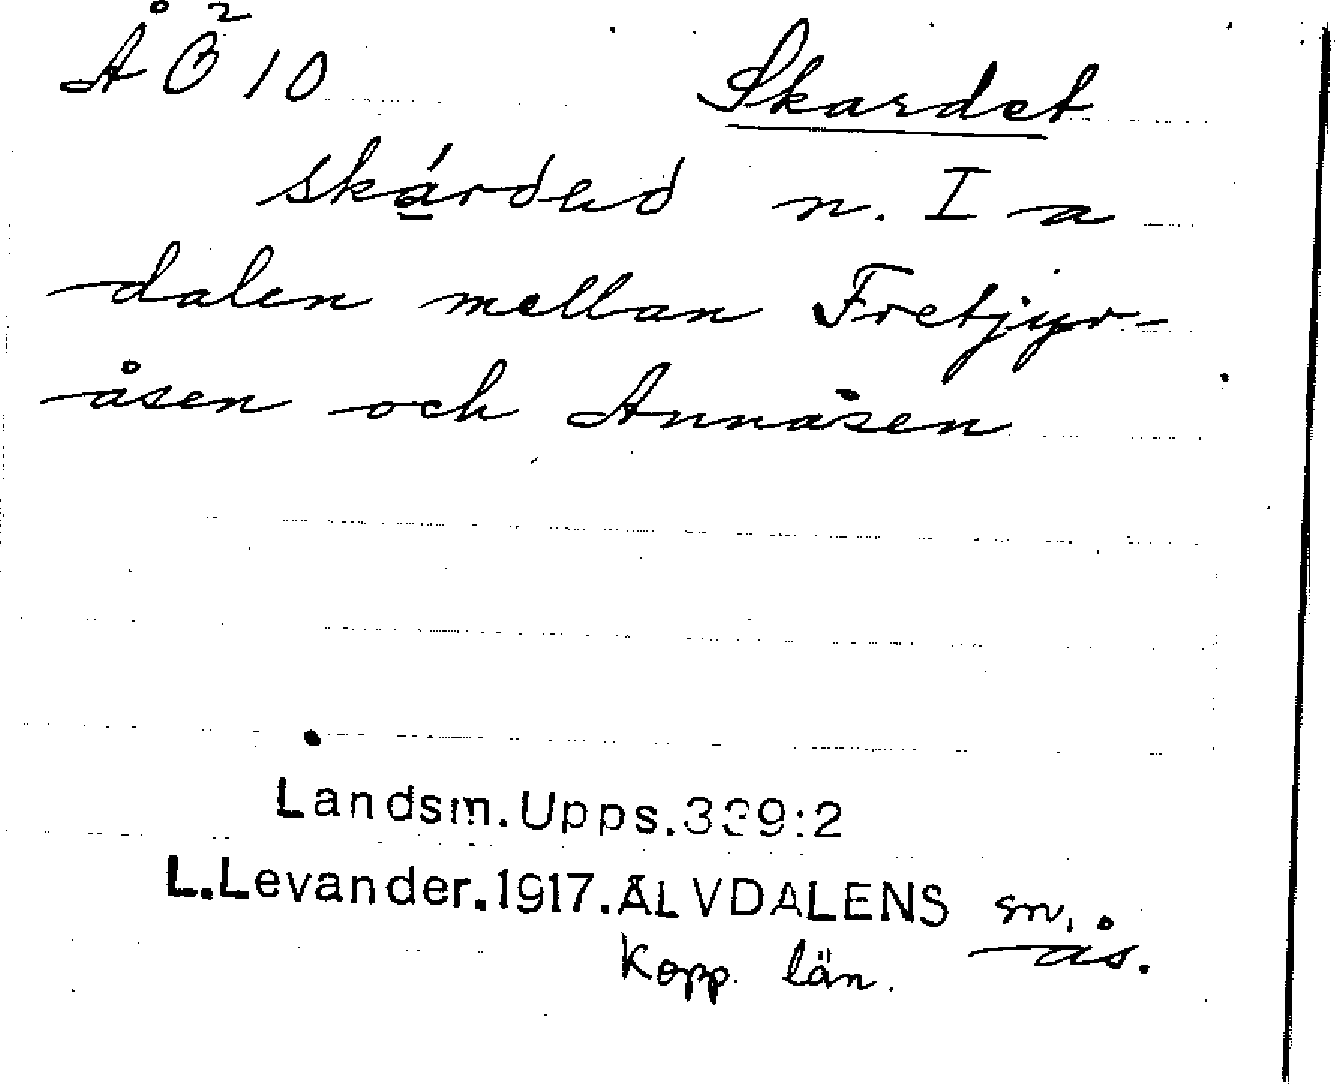 ÅÖ² 10
Skardet
skárded n. I a
dalen mellan Fretjyr-
åsen och Annåsen
Landsm.Upps.339:2
L.Levander.1917.ÄLVDALENS sn,
Kopp. län. ås.